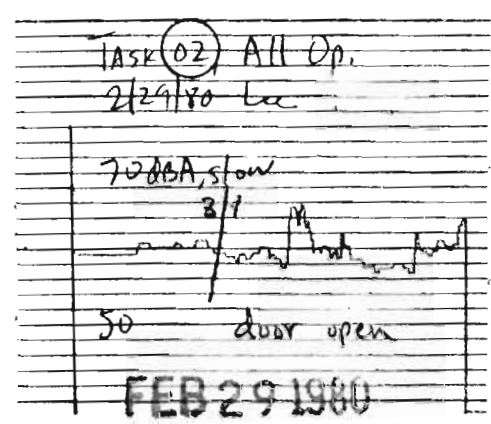 TASK 02, All Op.
2/29/80 Lee
70 dBA, slow
3/1
50 door open
FEB 29 1980